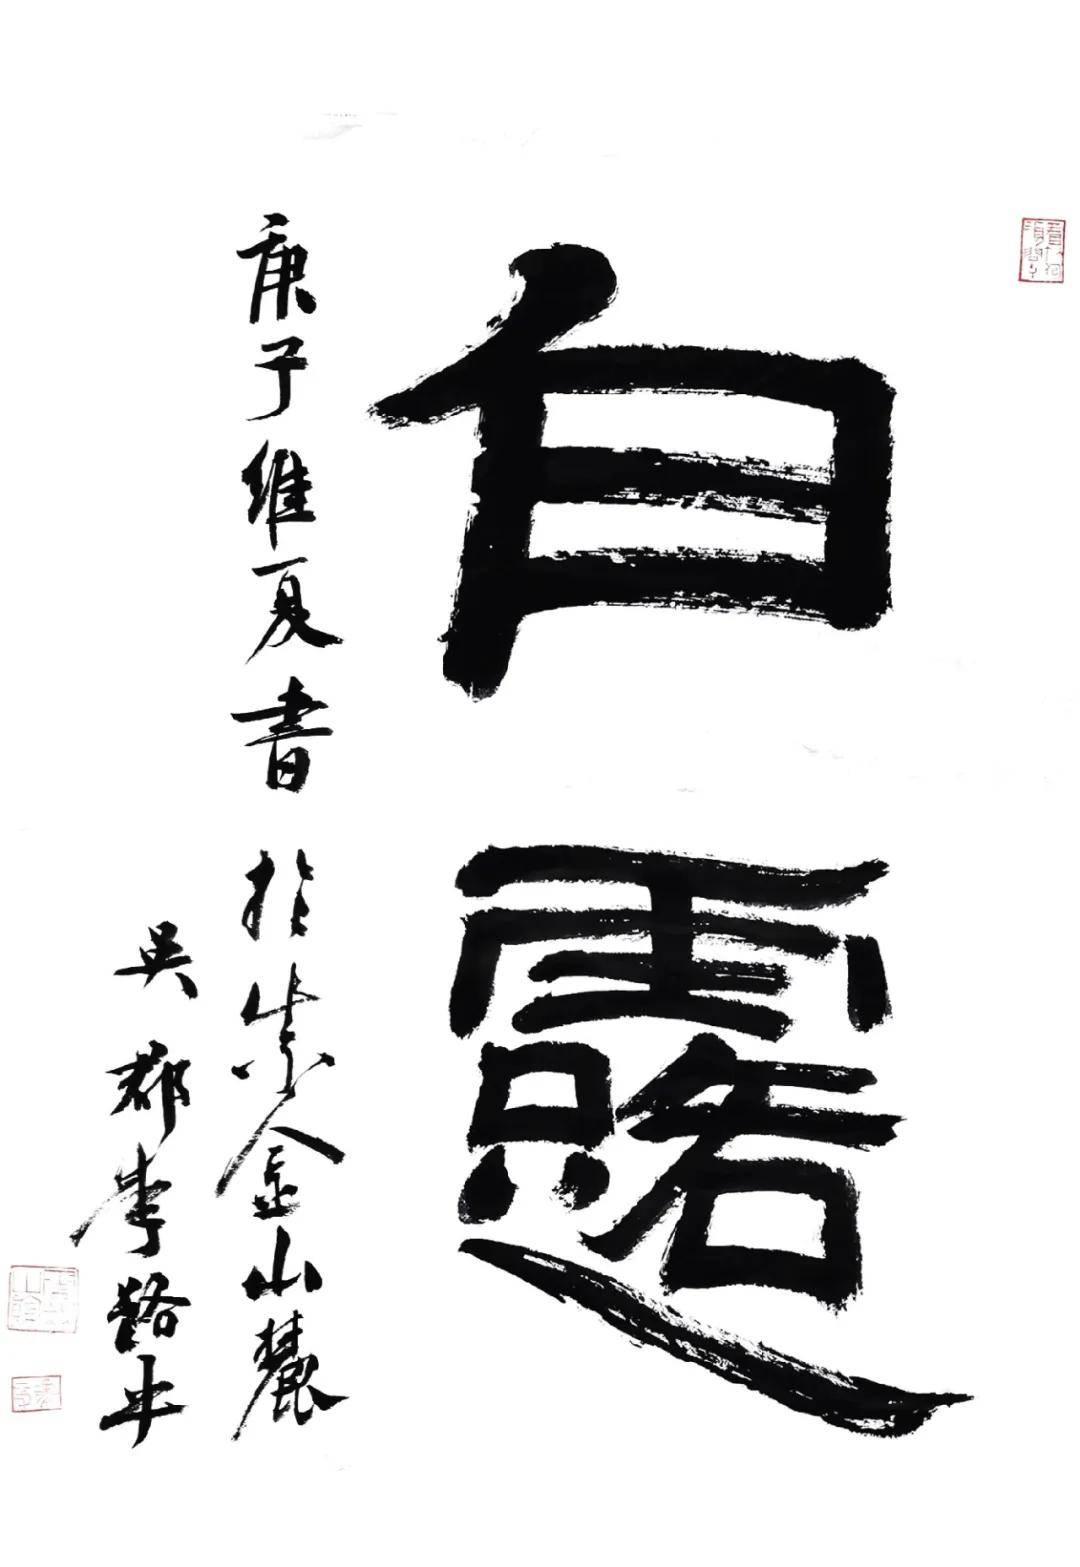 白露
庚子维夏書於紫金山麓
吴郡李路平